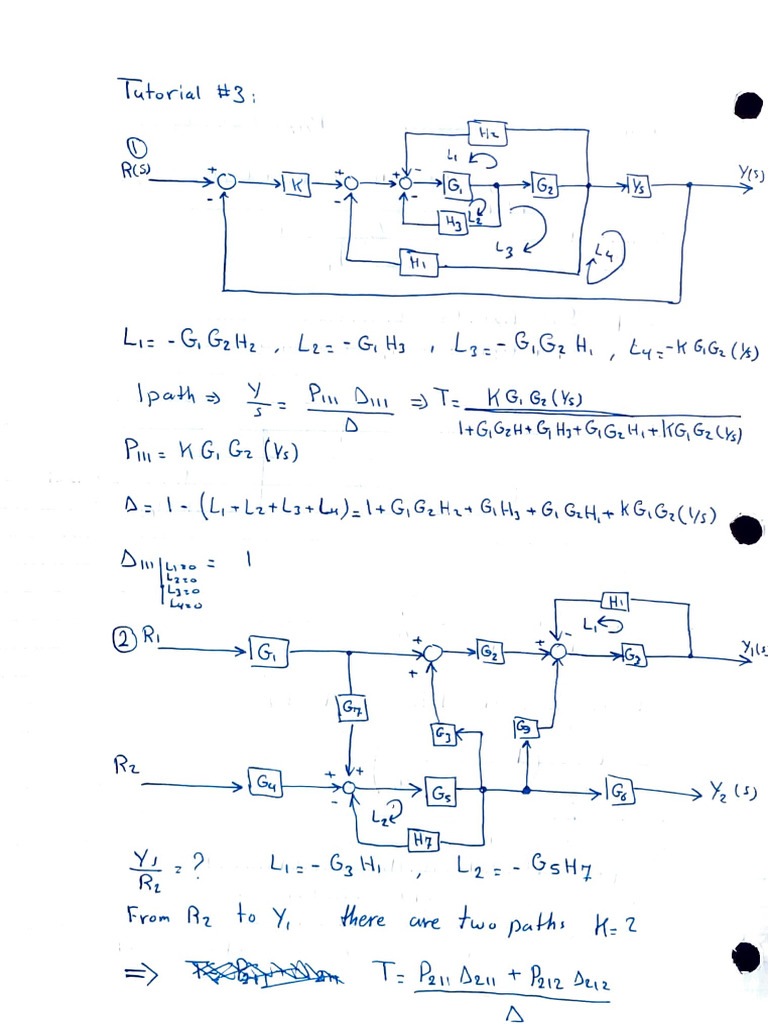 Tutorial #3:
①
R(s) + - K + - + - G₁ G₂ 1/s Y(s)
H₂
L₁
H₃ L₂
L₃ L₄
H₁
L₁ = - G₁ G₂ H₂ , L₂ = - G₁ H₃ , L₃ = - G₁ G₂ H₁ , L₄ = -K G₁ G₂ (1/s)
1 path ⇒ Y/s = P₁₁₁ Δ₁₁₁ / Δ ⇒ T = K G₁ G₂ (1/s) / 1+G₁G₂H+G₁H₃+G₁G₂H₁+KG₁G₂(1/s)
P₁₁₁ = K G₁ G₂ (1/s)
Δ = 1 - (L₁ + L₂ + L₃ + L₄) = 1 + G₁ G₂ H₂ + G₁ H₃ + G₁ G₂ H₁ + K G₁ G₂ (1/s)
Δ₁₁₁ | L₁=0 = 1
L₂=0
L₃=0
L₄=0
H₁
L₁
② R₁ G₁ + + G₂ + - Y₁(s
G₇
G₃
R₂ G₄ + + - G₅ G₆ Y₂(s)
L₂
H₇
Y₁/R₂ = ? L₁ = - G₃ H₁ , L₂ = - G₅ H₇
From R₂ to Y₁ there are two paths K=2
⇒ T = P₂₁₁ Δ₂₁₁ + P₂₁₂ Δ₂₁₂ / Δ